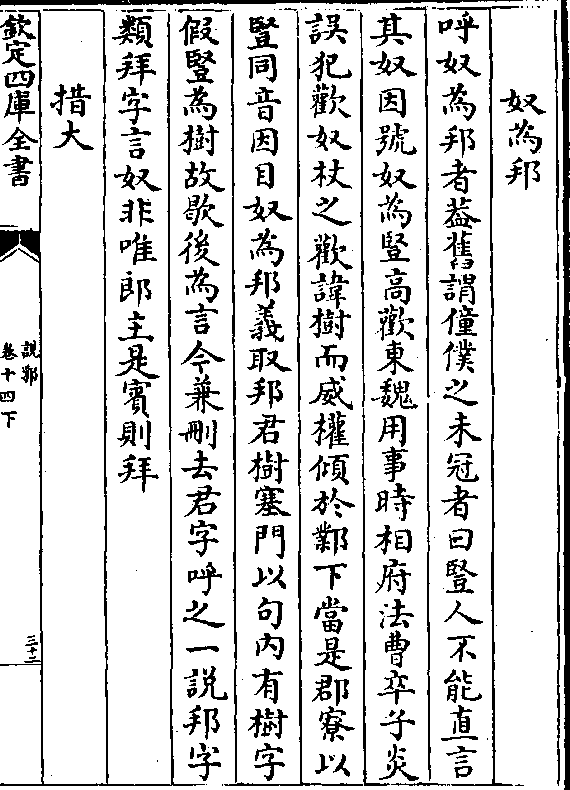 奴為邦
呼奴為邦者葢舊謂僮僕之未冠者曰豎人不能直言
其奴因號奴為豎高歡東魏用事時相府法曹卒子炎
誤犯歡奴杖之歡諱樹而威權傾於鄴下當是郡寮以
豎同音因目奴為邦義取邦君樹塞門以句内有樹字
假豎為樹故歇後為言今兼刪去君字呼之一說邦字
類拜字言奴非唯郎主是賓則拜
措大
欽定四庫全書
說郛
卷十四下
三十二